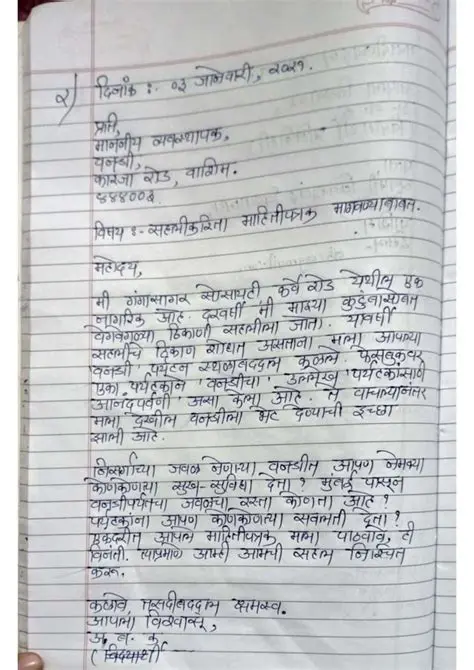 २) दिनांक :- ०३ जानेवारी, २०२१.
प्रति,
माननीय व्यवस्थापक,
वनश्री,
कारंजा रोड, वाशिम.
विषय :- सहलीकरिता माहितीपत्रक मागवण्याबाबत.
महोदय,
मी गंगासागर सोसायटी कर्वे रोड येथील एक
नागरिक आहे. दरवर्षी मी माझ्या कुटुंबासोबत
वेगवेगळ्या ठिकाणी सहलीला जाते. यावर्षी
सहलीचे ठिकाण शोधत असताना मला आपल्या
वनश्री पर्यटन स्थळाबद्दल कळले. फेसबुकवर
एका पर्यटकाने 'वनश्रीचा' उल्लेख 'पर्यटकांसाठी
आनंदपर्वनी' असा केला आहे. ते वाचल्यानंतर
मला देखील वनश्रीला भेट देण्याची इच्छा
झाली आहे.
निसर्गाच्या जवळ नेणाऱ्या वनश्रीत आपण नेमक्या
कोणकोणत्या सुख-सुविधा देता? मुंबई पासून
वनश्रीपर्यंतचा जवळचा रस्ता कोणता आहे?
पर्यटकांना आपण कोणकोणत्या सवलती देता?
एकंदरीत आपले माहितीपत्रक मला पाठवावे, ही
विनंती. त्याप्रमाणे आम्ही आमची सहल निश्चित
करू.
कळावे, तसदीबद्दल क्षमस्व.
आपला विश्वासू,
अ. ब. क.
(विद्यार्थी